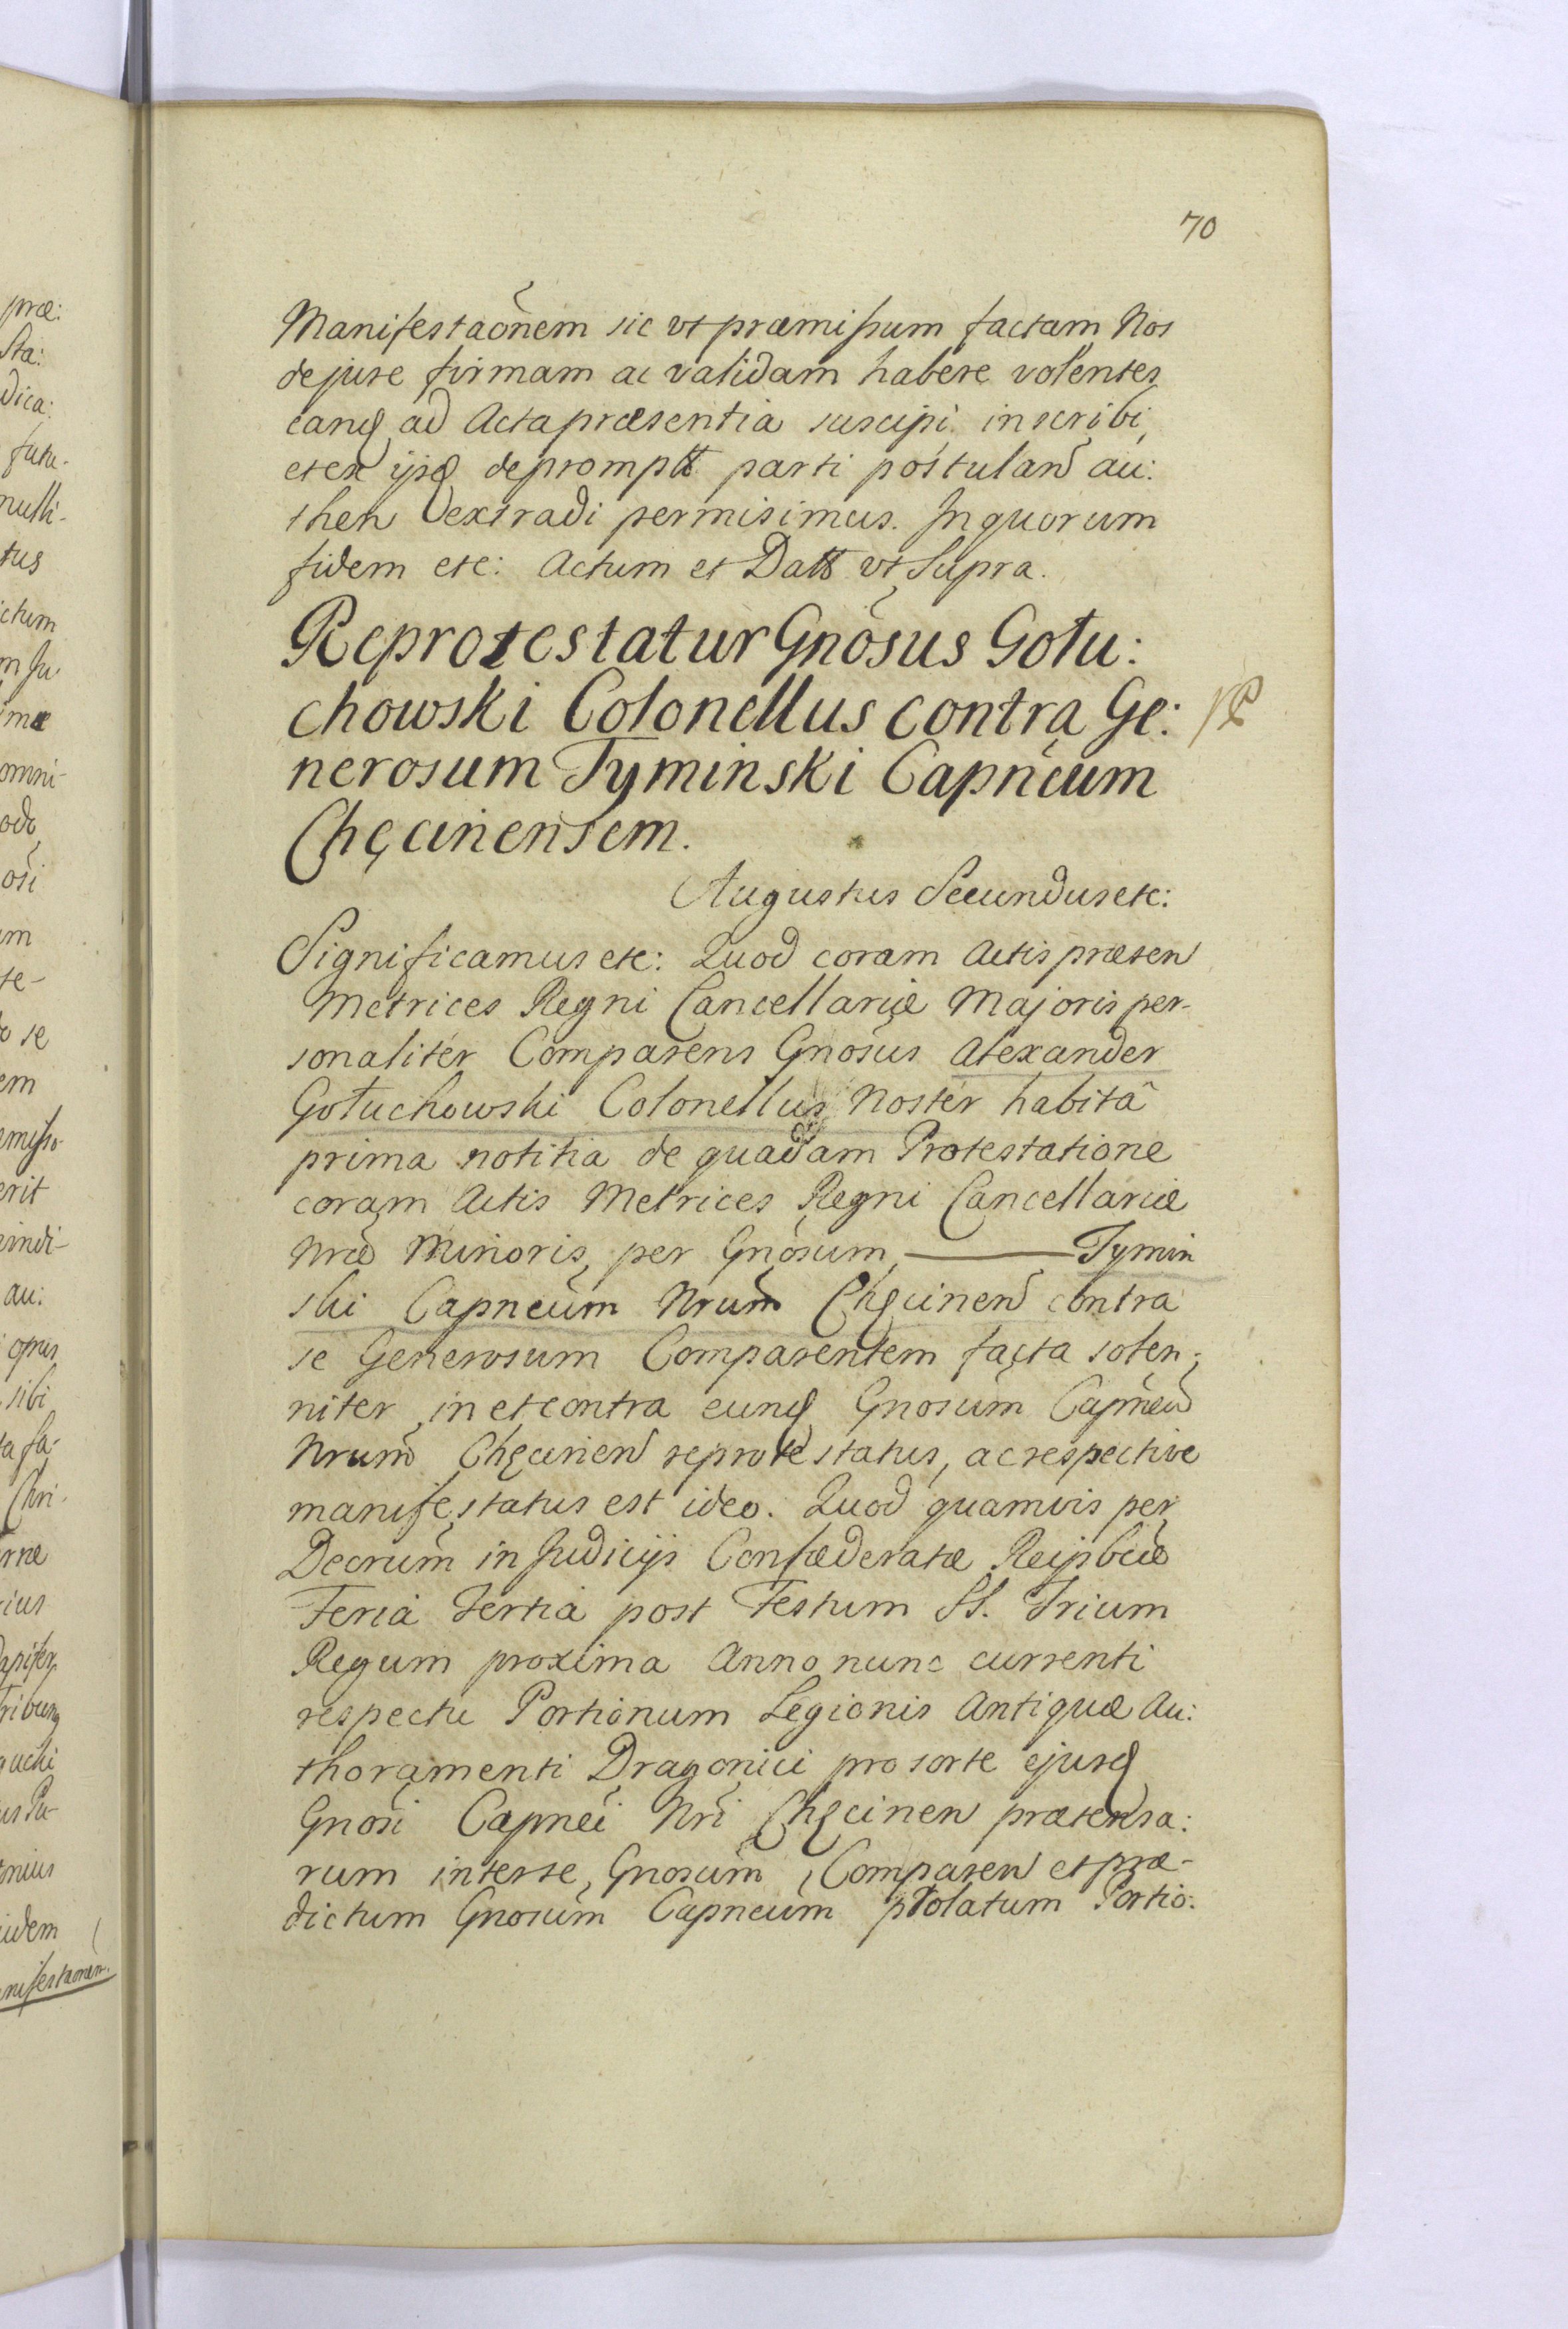 70
Manifestaõnem sic vt præmissum factam Nos
de jure firmam ac validam habere volentes
eanq ad Acta præsentia suscipi inscribi
et ex ijsd depromptt parti postulan au:
then extradi permisimus. In quorum
fidem etc: Actum et Datt vt Supra.
Reprotestatur Gnõsus Gołu:
chowski Colonellus contra Ge:
nerosum Tyminski Capneum
Chęcinensem.
Augustus Secundus etc:
Significamus etc: Quod coram Actis præsen
Metrices Regni Cancellariæ Majoris per-
sonalitér Comparens Gnosus Alexander
Gołuchowski Colonellus Nostér habitâ
prima notitia de quadam Protestatione
coram Actis Metrices Regni Cancellariæ
Nræ Minoris, per Gnosum, ——— Tymin
ski Capneum Nrum Chęcinen contra
se Generosum Comparentem facta solen:
niter, in et contra eunq Gnosum Capneu
Nrum Chęcinen reprotestatus, ac respective
manifestatus est ideo. Quod quamvis per
Decrum in Judicijs Confæderatæ Reipbcæ
Feria Tertia post Festum SS. Trium
Regum proxima Anno nunc currenti
respectu Portionum Legionis Antiquæ Au:
thoramenti Dragonici pro sorte ejusd
Gnosi Capnei Nri Chęcinen prætensa:
rum inter se, Gnosum, Comparen et præ-
dictum Gnosum Capneum prolatum Portio:
præ:
Sta:
dica:
futu-
nulli-
tus
ictum
omni-
osi
um
te-
se
em
erit
vindi-
au:
opus
sibi
Chri-